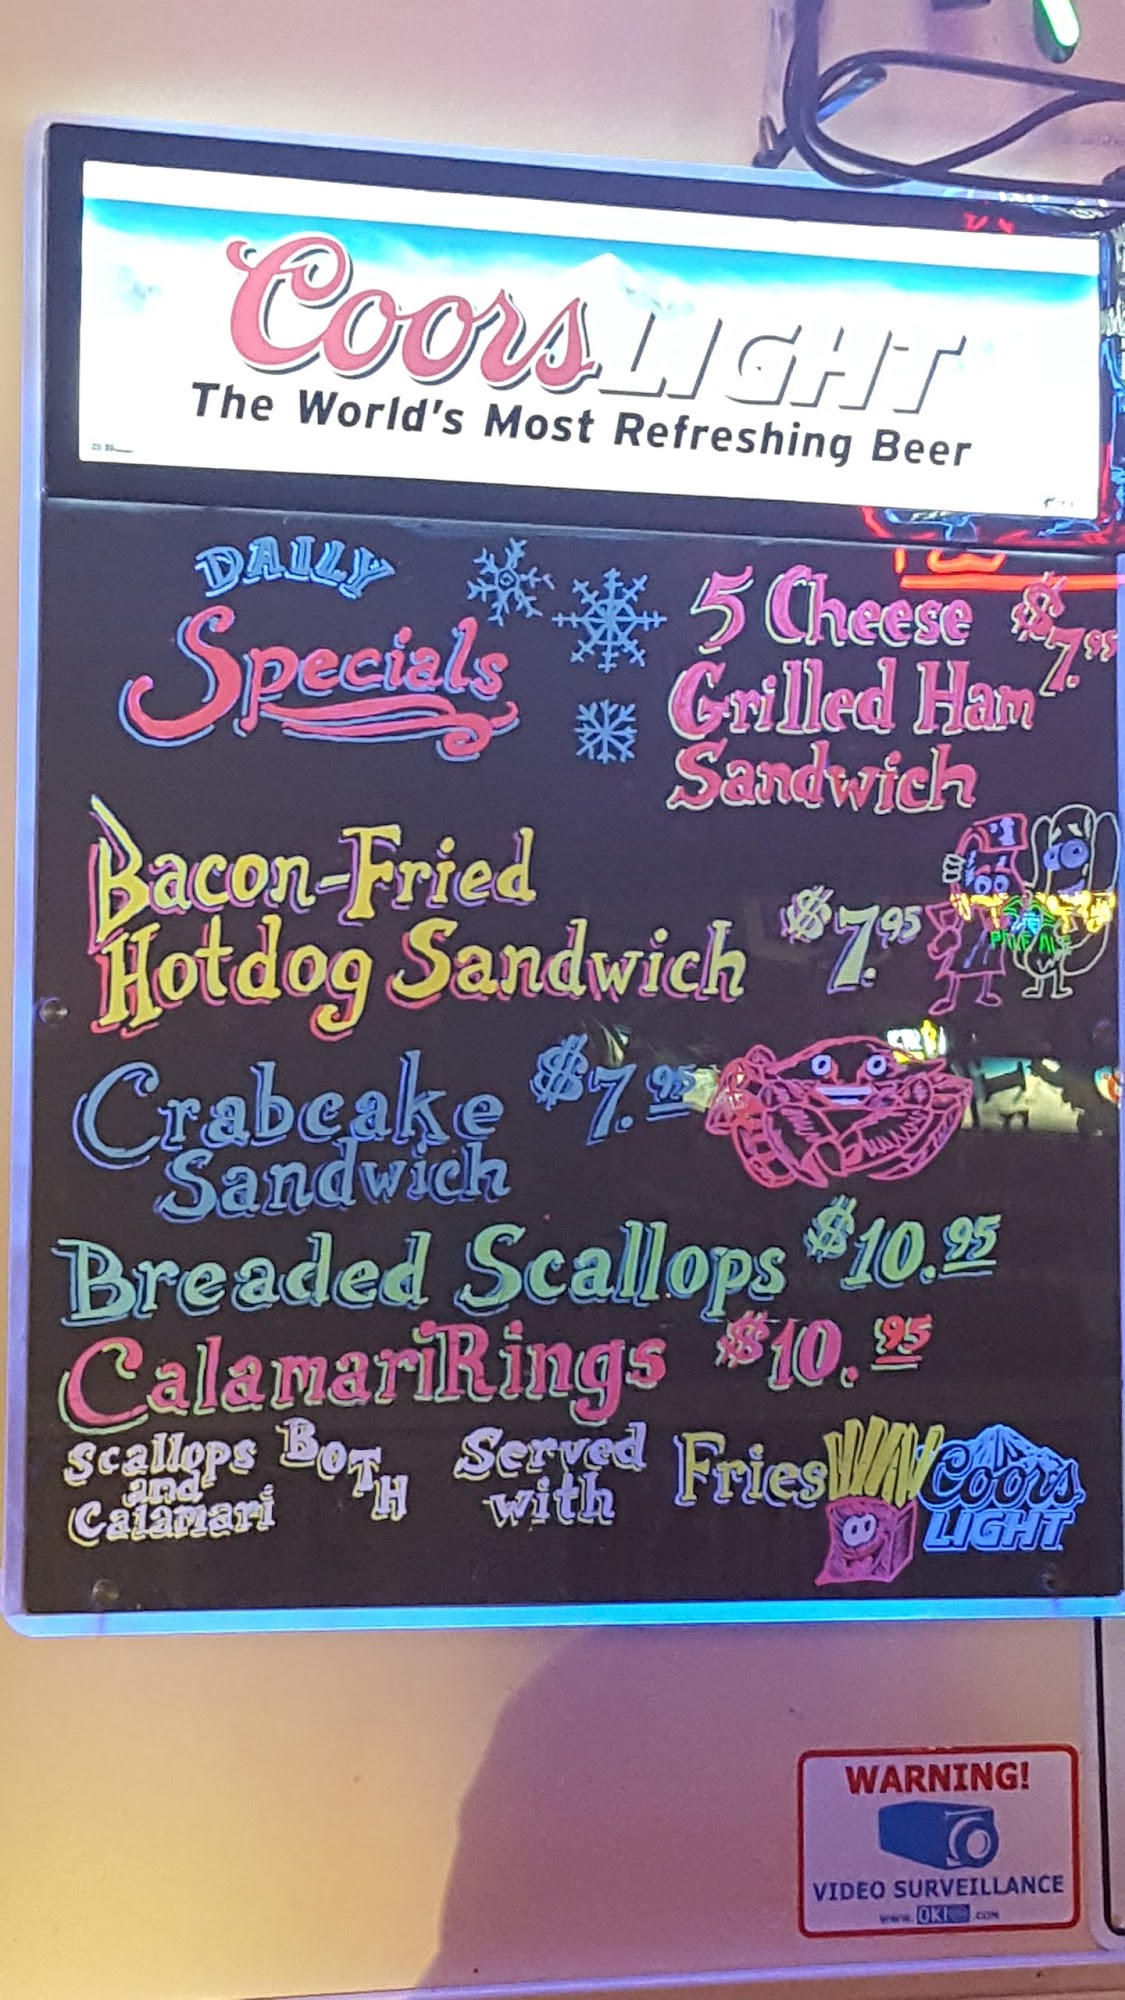 Coors LIGHT
The World's Most Refreshing Beer
DAILY
Specials
5 Cheese $7.95
Grilled Ham
Sandwich
Bacon-Fried
Hotdog Sandwich $7.95
PALE ALE
Crabcake $7.95
Sandwich
Breaded Scallops $10.95
Calamari Rings $10.95
Scallops and Calamari BOTH Served with Fries
Coors
LIGHT
WARNING!
VIDEO SURVEILLANCE